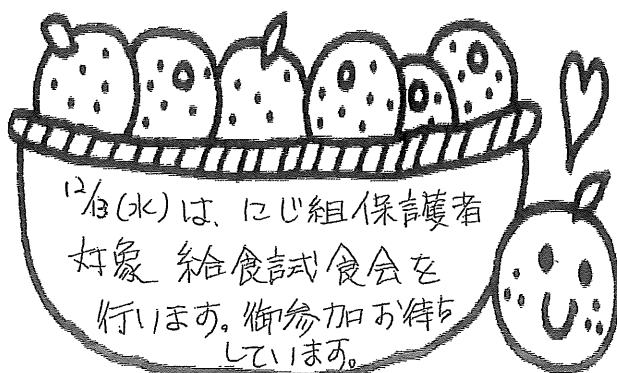 12/13(水)は、にじ組保護者
対象 給食試食会を
行います。御参加お待ち
しています。